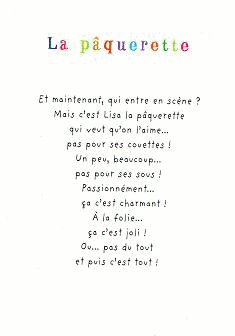 La pâquerette
Et maintenant, qui entre en scène ?
Mais c'est Lisa la pâquerette
qui veut qu'on l'aime...
pas pour ses couettes !
Un peu, beaucoup...
pas pour ses sous !
Passionnément...
ça c'est charmant !
À la folie...
ça c'est joli !
Ou... pas du tout
et puis c'est tout !